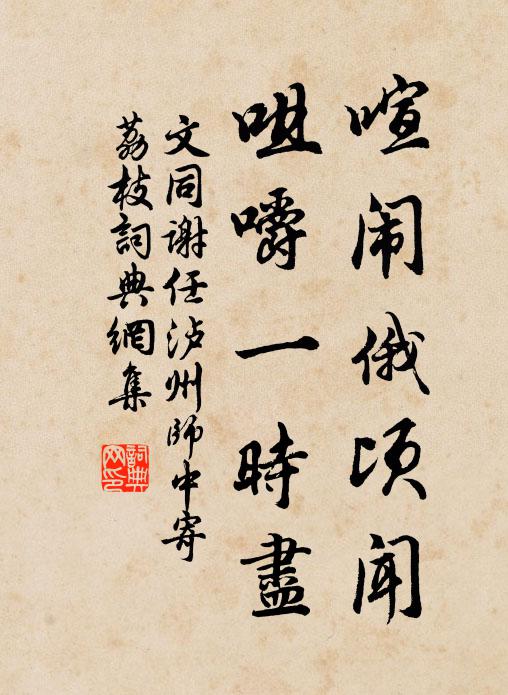 喧闹俄顷闻
咀嚼一時盡
文同謝任泸州師中寄
荔枝詞典網集
詞典网印